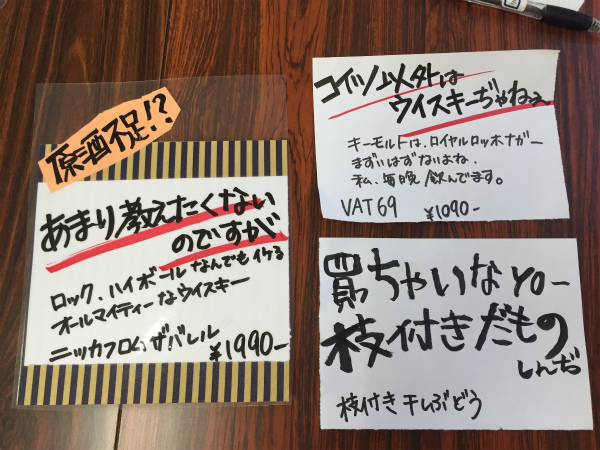 原酒不足!?
あまり教えたくない
のですが
ロック、ハイボールなんでもイケる
オールマイティーなウイスキー
ニッカフロムザバレル
¥1990-
コイツ以外は
ウイスキーぢゃねぇ
キーモルトは、ロイヤルロッホナガー
まずいはずないよね、
私、毎晩飲んでます。
VAT69 ¥1090-
買ちゃいなyo-
枝付きだもの
しんぢ
枝付き干しぶどう